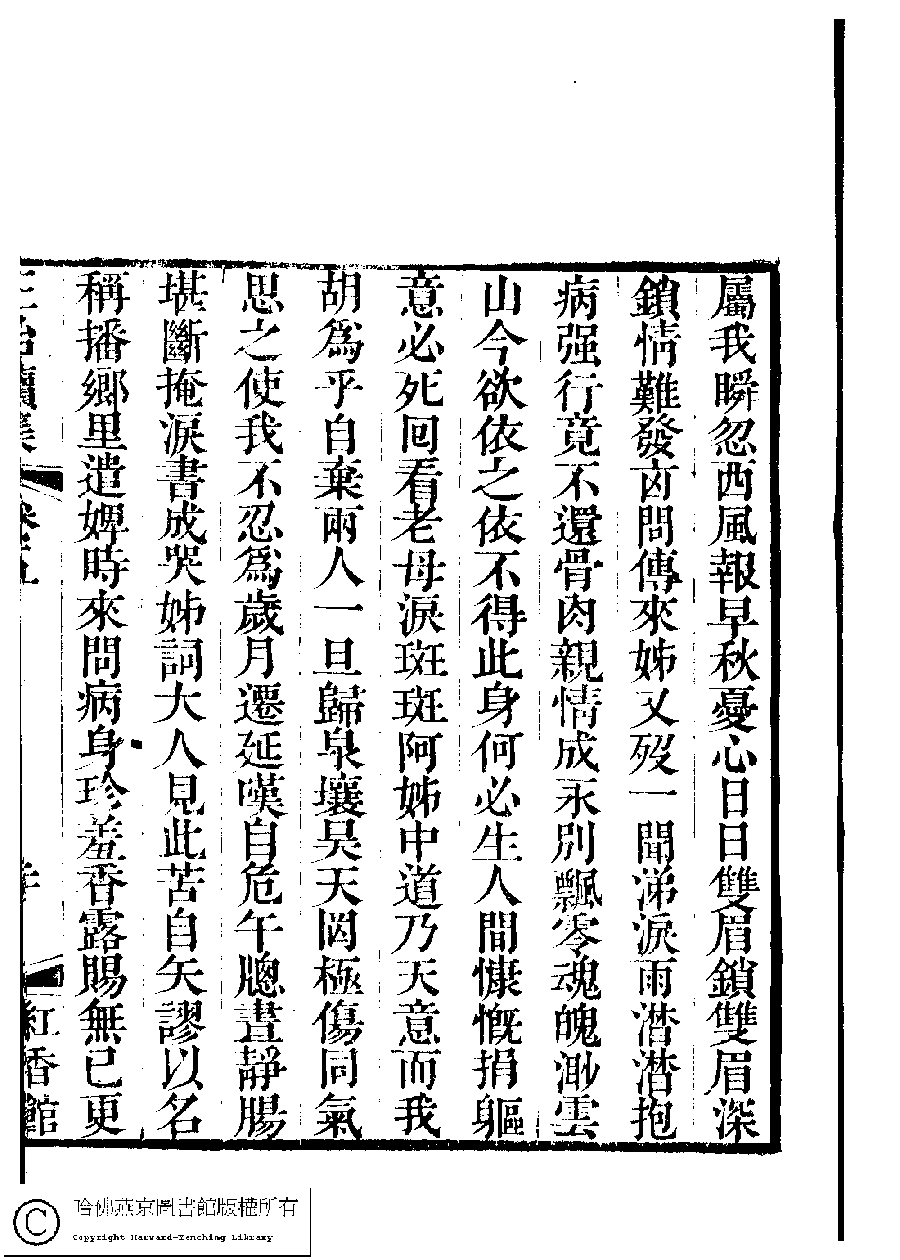 屬我瞬忽西風報早秋憂心日日雙眉鎖雙眉深
鎖情難發㐫問傳來姊又歿一聞涕淚雨潸潸抱
病强行竟不還骨肉親情成永別飄零魂魄渺雲
山今欲依之依不得此身何必生人間慷慨捐軀
意必死回看老母淚斑斑阿姊中道乃天意而我
胡爲乎自棄兩人一旦歸泉壤昊天罔極傷同氣
思之使我不忍爲歲月遷延嘆自危午牕晝靜腸
堪斷掩淚書成哭姊詞大人見此苦自矢謬以名
稱播鄉里遣婢時來問病身珍羞香露賜無已更
續集 卷五 紅香館
哈佛燕京圖書館版權所有
Copyright Harvard-Yenching Library